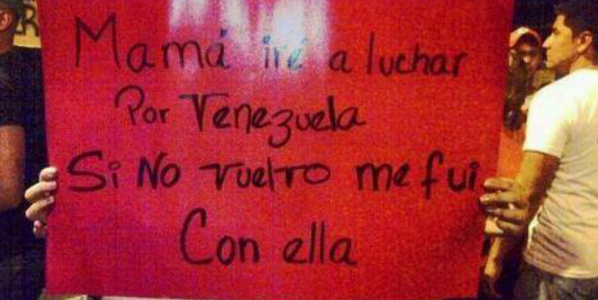 Mamá iré a luchar
Por Venezuela
Si No vuelvo me fui
Con ella